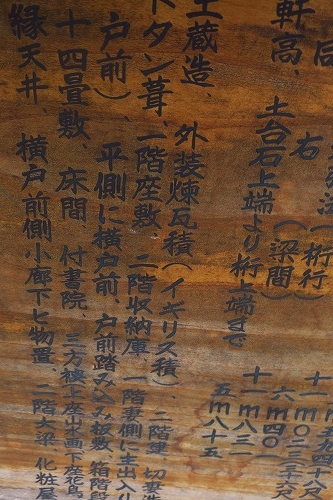 右 （桁行） 十一m〇二三
（梁間） 六m四〇
軒高、土台石上端より桁上端まで 十一m八三
五m八十五
土蔵造 外装煉瓦積（イギリス積）、二階建 切妻造
トタン葺、一階座敷、二階収納庫 一階妻側に出入り
戸前） 平側に横戸前、戸前踏み込み板敷、箱階段
十四畳敷、床間 付書院、三方
縁天井、横戸前側小廊下ヒ物置、二階大梁 化粧屋